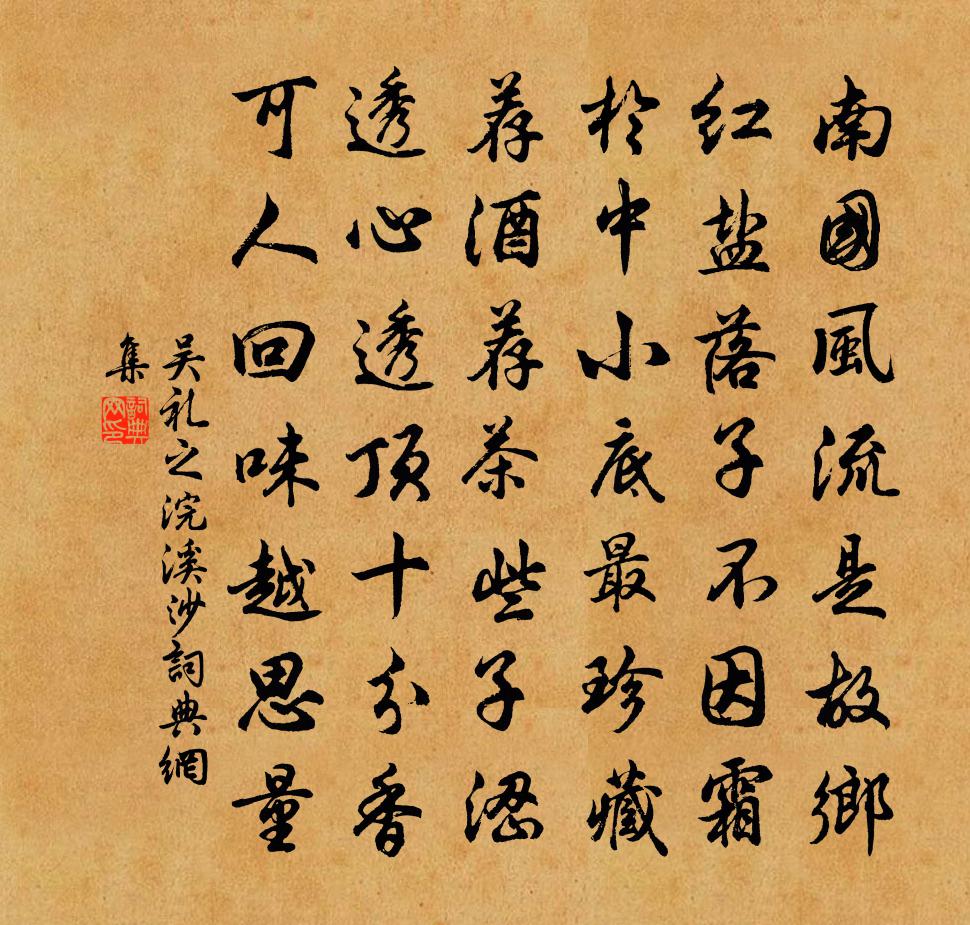 南國風流是故鄉
红盐落子不因霜
於中小底最珍藏
荐酒荐茶些子涩
透心透顶十分香
可人回味越思量
吴礼之浣溪沙詞典網
集
詞典
网印